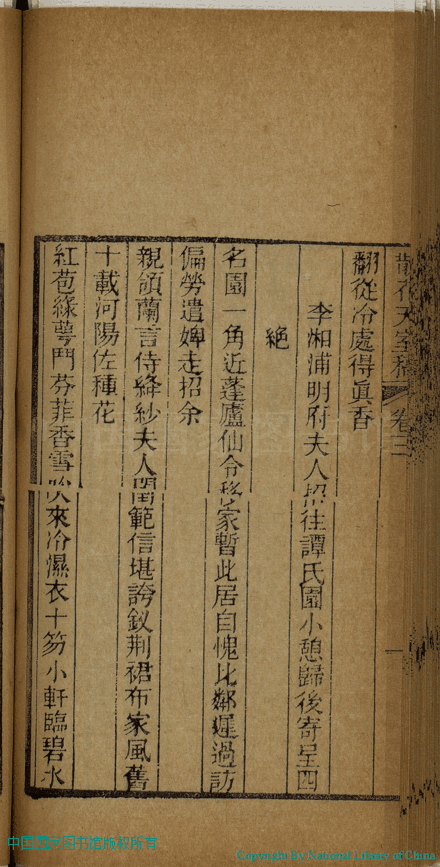 散花天室稿 卷三 一
翻從冷處得眞香
李湘浦明府夫人招往譚氏園小憩歸後寄呈四
絶
名園一角近蓬廬仙令移家暫此居自愧比鄰遲過訪
偏勞遣婢走招余
親頒蘭言侍絳紗夫人閫範信堪誇釵荆裙布家風舊
十載河陽佐種花
紅苞綠萼鬥芬菲香雪吹來冷濕衣十笏小軒臨碧水
中国国家图书馆版权所有
Copyright By National Library of China